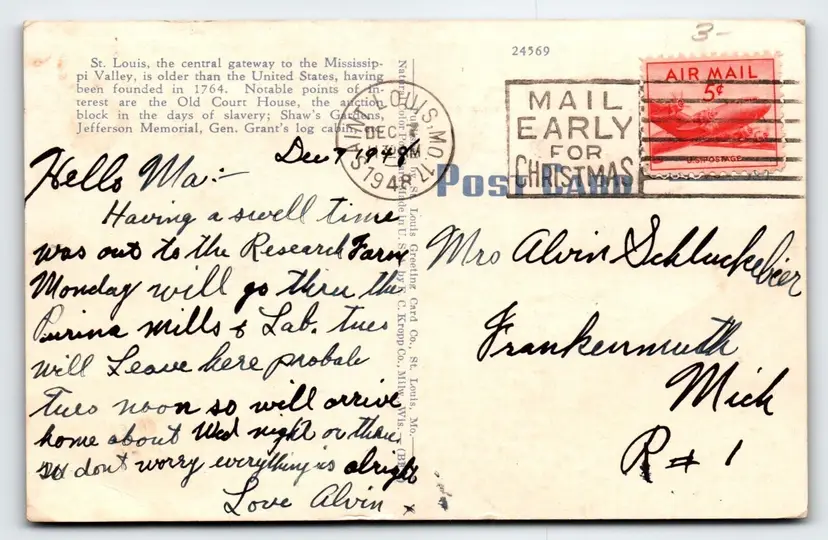 3-
24569
St. Louis, the central gateway to the Mississip-
pi Valley, is older than the United States, having
been founded in 1764. Notable points of in-
terest are the Old Court House, the auction
block in the days of slavery; Shaw's Gardens,
Jefferson Memorial, Gen. Grant's log cabin,
SAINT LOUIS, MO. 17
DEC 7
PM
1948
MAIL
EARLY
FOR
CHRISTMAS
AIR MAIL
5¢
U.S. POSTAGE
POST CARD
St. Louis Greeting Card Co., St. Louis, Mo.
Made in U. S. A. by E. C. Kropp Co., Milw., Wis.
Dec 7 1948
Hello Ma:-
Having a swell time
was out to the Research Farm
Monday will go thru the
Purina Mills & Lab. tues
will Leave here probale
Tues noon so will arrive
home about Wed night or thur
so dont worry everything is alright
Love Alvin
x
Mrs Alvin Schluckebier
Frankenmuth
Mich
R # 1